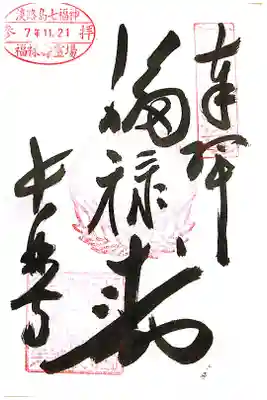 奉拝
福禄寿
長林寺
淡路島七福神
参 7年11.21 拝
福禄寿霊場